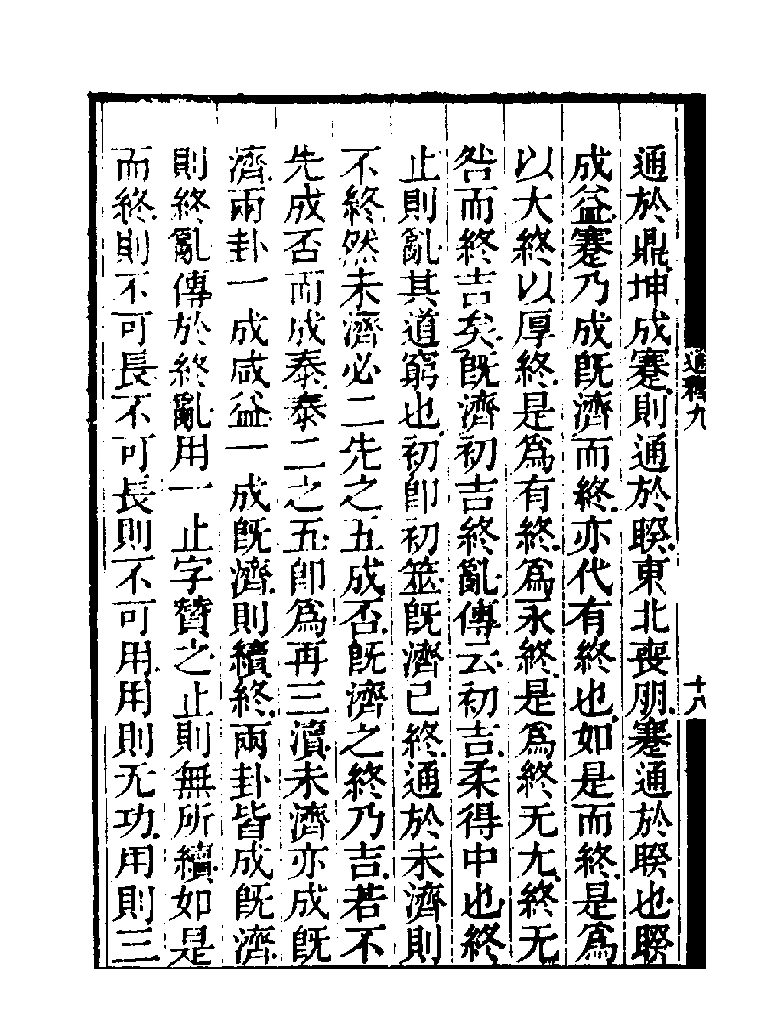 通於鼎坤成蹇則通於睽東北喪朋蹇通於睽也睽
成益蹇乃成旣濟而終亦代有終也如是而終是爲
以大終以厚終是爲有終爲永終是爲終无尤終无
咎而終吉矣旣濟初吉終亂傳云初吉柔得中也終
止則亂其道窮也初卽初筮旣濟已終通於未濟則
不終然未濟必二先之五成否旣濟之終乃吉若不
先成否而成泰泰二之五卽爲再三瀆未濟亦成旣
濟兩卦一成咸益一成旣濟則續終兩卦皆成旣濟
則終亂傳於終亂用一止字贊之止則無所續如是
而終則不可長不可長則不可用用則无功用則三
通釋九
十八